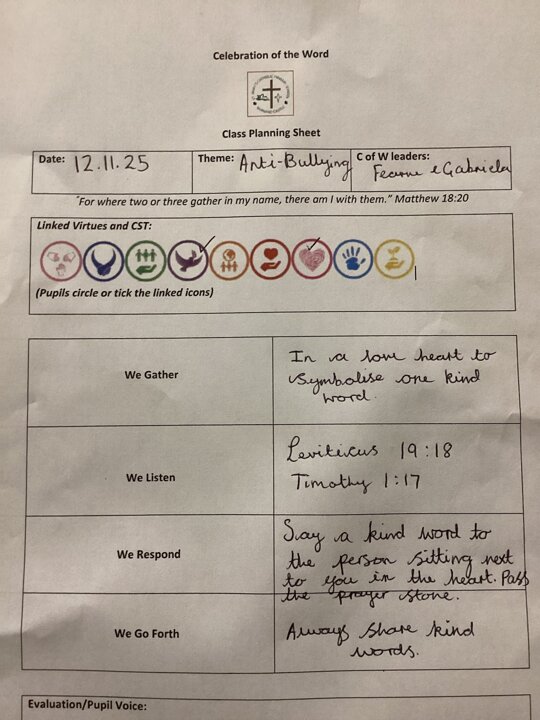 Celebration of the Word
Class Planning Sheet
Date: 12.11.25
Theme: Anti-Bullying
C of W leaders: Fearne & Gabriela
"For where two or three gather in my name, there am I with them." Matthew 18:20
Linked Virtues and CST:
(Pupils circle or tick the linked icons)
We Gather
In a love heart to
symbolise one kind
word.
We Listen
Leviticus 19:18
Timothy 1:17
We Respond
Say a kind word to
the person sitting next
to you in the heart. Pass
the prayer stone.
We Go Forth
Always share kind
words.
Evaluation/Pupil Voice: